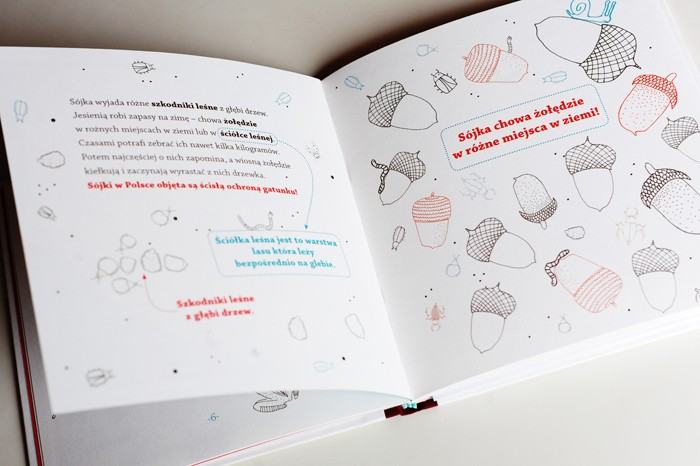 Sójka wyjada różne szkodniki leśne z głębi drzew.
Jesienią robi zapasy na zimę – chowa żołędzie
w różnych miejscach w ziemi lub w ściółce leśnej.
Czasami potrafi zebrać ich nawet kilka kilogramów.
Potem najczęściej o nich zapomina, a wiosną żołędzie
kiełkują i zaczynają wyrastać z nich drzewka.
Sójki w Polsce objęta są ścisłą ochroną gatunku!
Ściółka leśna jest to warstwa
lasu która leży
bezpośrednio na glebie.
Szkodniki leśne
z głębi drzew.
-6-
Sójka chowa żołędzie
w różne miejsca w ziemi!